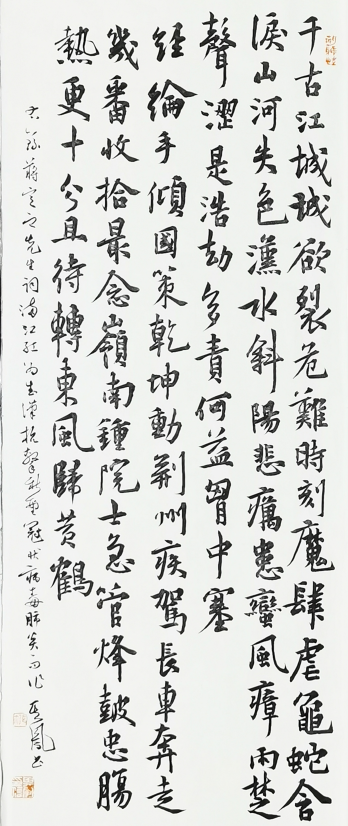 千古江城城欲裂危難時刻魔肆虐龜蛇含
淚山河失色漢水斜陽悲癘患蠻風瘴雨楚
聲澀是浩劫多責何益胃中塞
經綸手傾國策乾坤動荆州疾駕長車奔走
幾番收拾最念嶺南鍾院士急管烽鼓忠腸
熱更十分且待轉東風歸黄鶴
先生詞滿江紅為武漢抗擊新型冠狀病毒肺炎而作